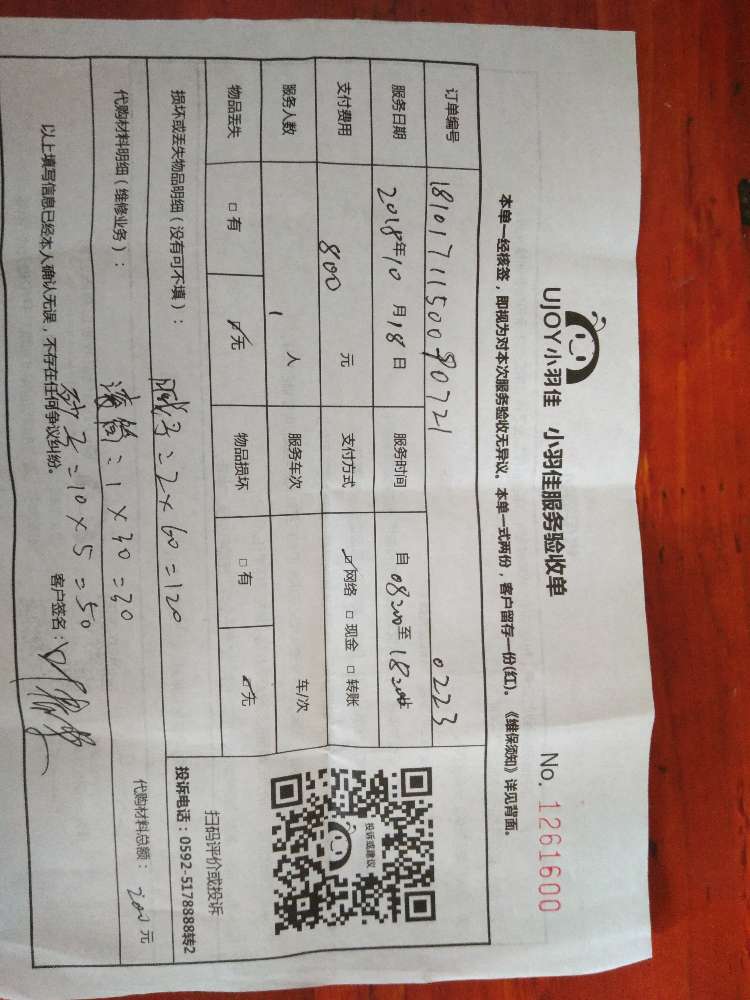 UJOY小羽佳 小羽佳服务验收单 No. 1261600
本单一经核签，即视为对本次服务验收无异议。本单一式两份，客户留存一份(红)。《维保须知》详见背面。
订单编号 181017115009072１ 0223
服务日期 2018年10月18日 服务时间 自 08:00 至 18:00
支付费用 800 元 支付方式 ☑网络 □现金 □转账
服务人数 1 人 服务车次 车/次
物品丢失 □有 ☑无 物品损坏 □有 ☑无
投诉或建议
扫码评价或投诉
投诉电话：0592-5178888转2
损坏或丢失物品明细（没有可不填）：
代购材料明细（维修业务）：
=2×60=120
=1×30=30
=10×5=50
代购材料总额：200元
以上填写信息已经本人确认无误，不存在任何争议纠纷。
客户签名：